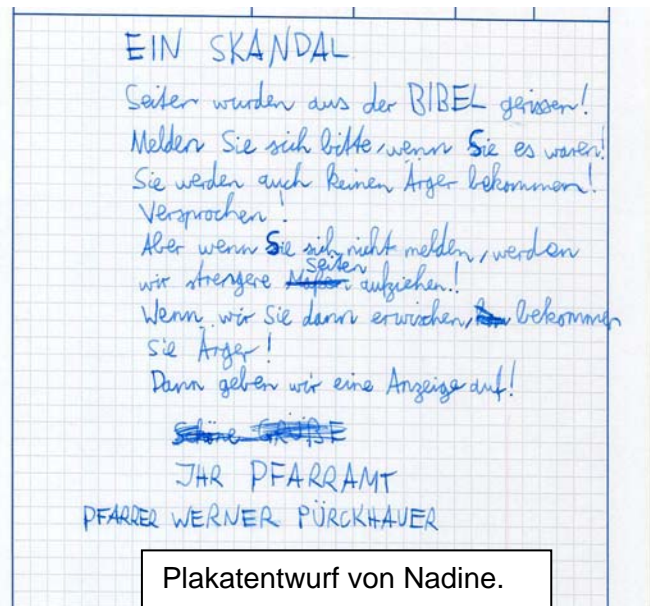 EIN SKANDAL
Seiten wurden aus der BIBEL gerissen!
Melden Sie sich bitte, wenn Sie es waren!
Sie werden auch keinen Ärger bekommen!
Versprochen!
Aber wenn Sie sich nicht melden, werden
wir strengere Seiten aufziehen!
Wenn wir Sie dann erwischen, bekommen
Sie Ärger!
Dann geben wir eine Anzeige auf!
Schöne GRÜßE
IHR PFARRAMT
PFARRER WERNER PÜRCKHAUER
Plakatentwurf von Nadine.